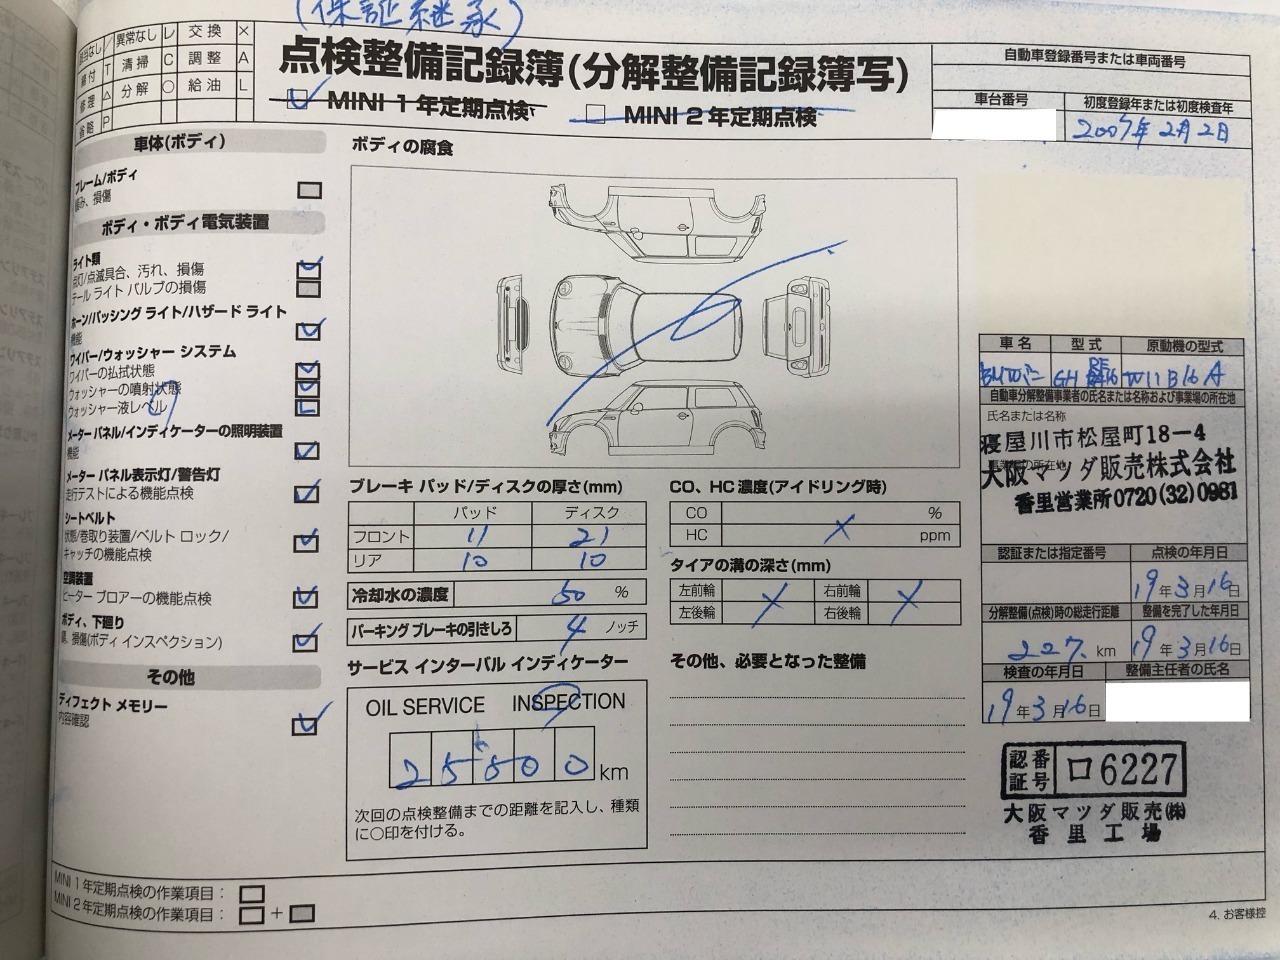 (保証継承)
該当なし / 異常なし レ 交換 ×
締付 T 清掃 C 調整 A
修理 △ 分解 ○ 給油 L
省略 P
点検整備記録簿(分解整備記録簿写)
レ MINI 1年定期点検 □ MINI 2年定期点検
自動車登録番号または車両番号
車台番号 初度登録年または初度検査年
2007年2月2日
車体(ボディ)
フレーム/ボディ
緩み、損傷
ボディ・ボディ電気装置
ライト類
点灯/点滅具合、汚れ、損傷
テール ライト バルブの損傷
ホーン/パッシング ライト/ハザード ライト
機能
ワイパー/ウォッシャー システム
ワイパーの払拭状態
ウォッシャーの噴射状態
ウォッシャー液レベル
メーター パネル/インディケーターの照明装置
機能
メーター パネル表示灯/警告灯
走行テストによる機能点検
シートベルト
状態/巻取り装置/ベルト ロック/
キャッチの機能点検
空調装置
ヒーター ブロアーの機能点検
ボディ、下廻り
錆、損傷(ボディ インスペクション)
その他
ディフェクト メモリー
内容確認
ボディの腐食
ブレーキ パッド/ディスクの厚さ(mm)
パッド ディスク
フロント 11 21
リア 10 10
冷却水の濃度 50 %
パーキング ブレーキの引きしろ 4 ノッチ
サービス インターバル インディケーター
OIL SERVICE INSPECTION
25500 km
次回の点検整備までの距離を記入し、種類
に○印を付ける。
CO、HC 濃度(アイドリング時)
CO %
HC ppm
タイアの溝の深さ(mm)
左前輪 右前輪
左後輪 右後輪
その他、必要となった整備
車名 型式 原動機の型式
BMWミニ GH RE16 W11B16A
自動車分解整備事業者の氏名または名称および事業場の所在地
氏名または名称
寝屋川市松屋町18-4
事業場の所在地
大阪マツダ販売株式会社
香里営業所0720(32)0981
認証または指定番号 点検の年月日
19年3月16日
分解整備(点検)時の総走行距離 整備を完了した年月日
227. km 19年3月16日
検査の年月日 整備主任者の氏名
19年3月16日
認証番号 ロ6227
大阪マツダ販売㈱
香里工場
MINI 1年定期点検の作業項目: □
MINI 2年定期点検の作業項目: □ + □
4. お客様控